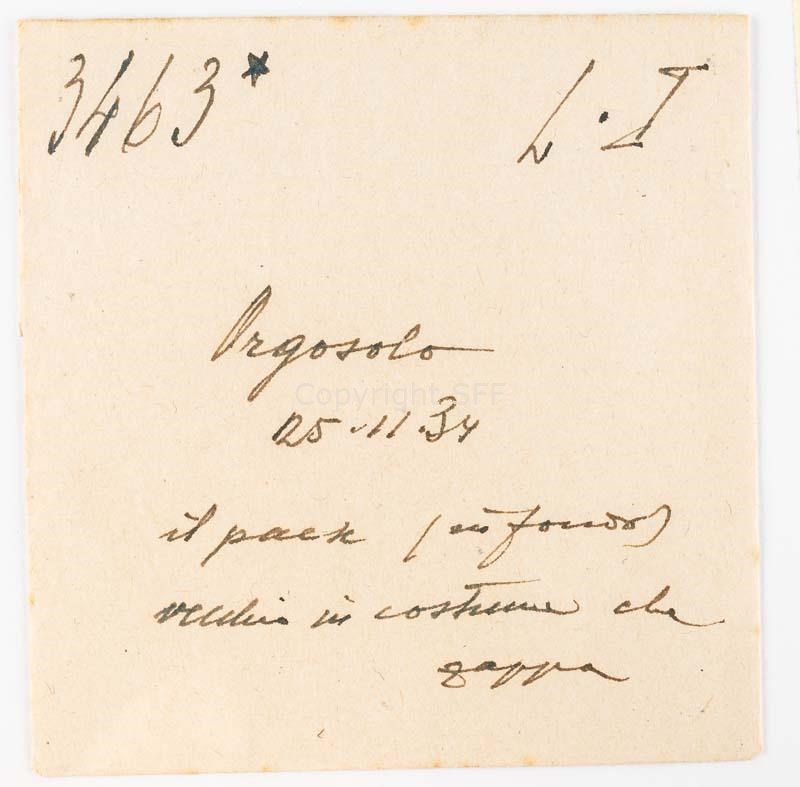 3463* L. I
Orgosolo
Copyright SFF
25.11.34
il paese (in fondo)
vecchio in costume che
zappa